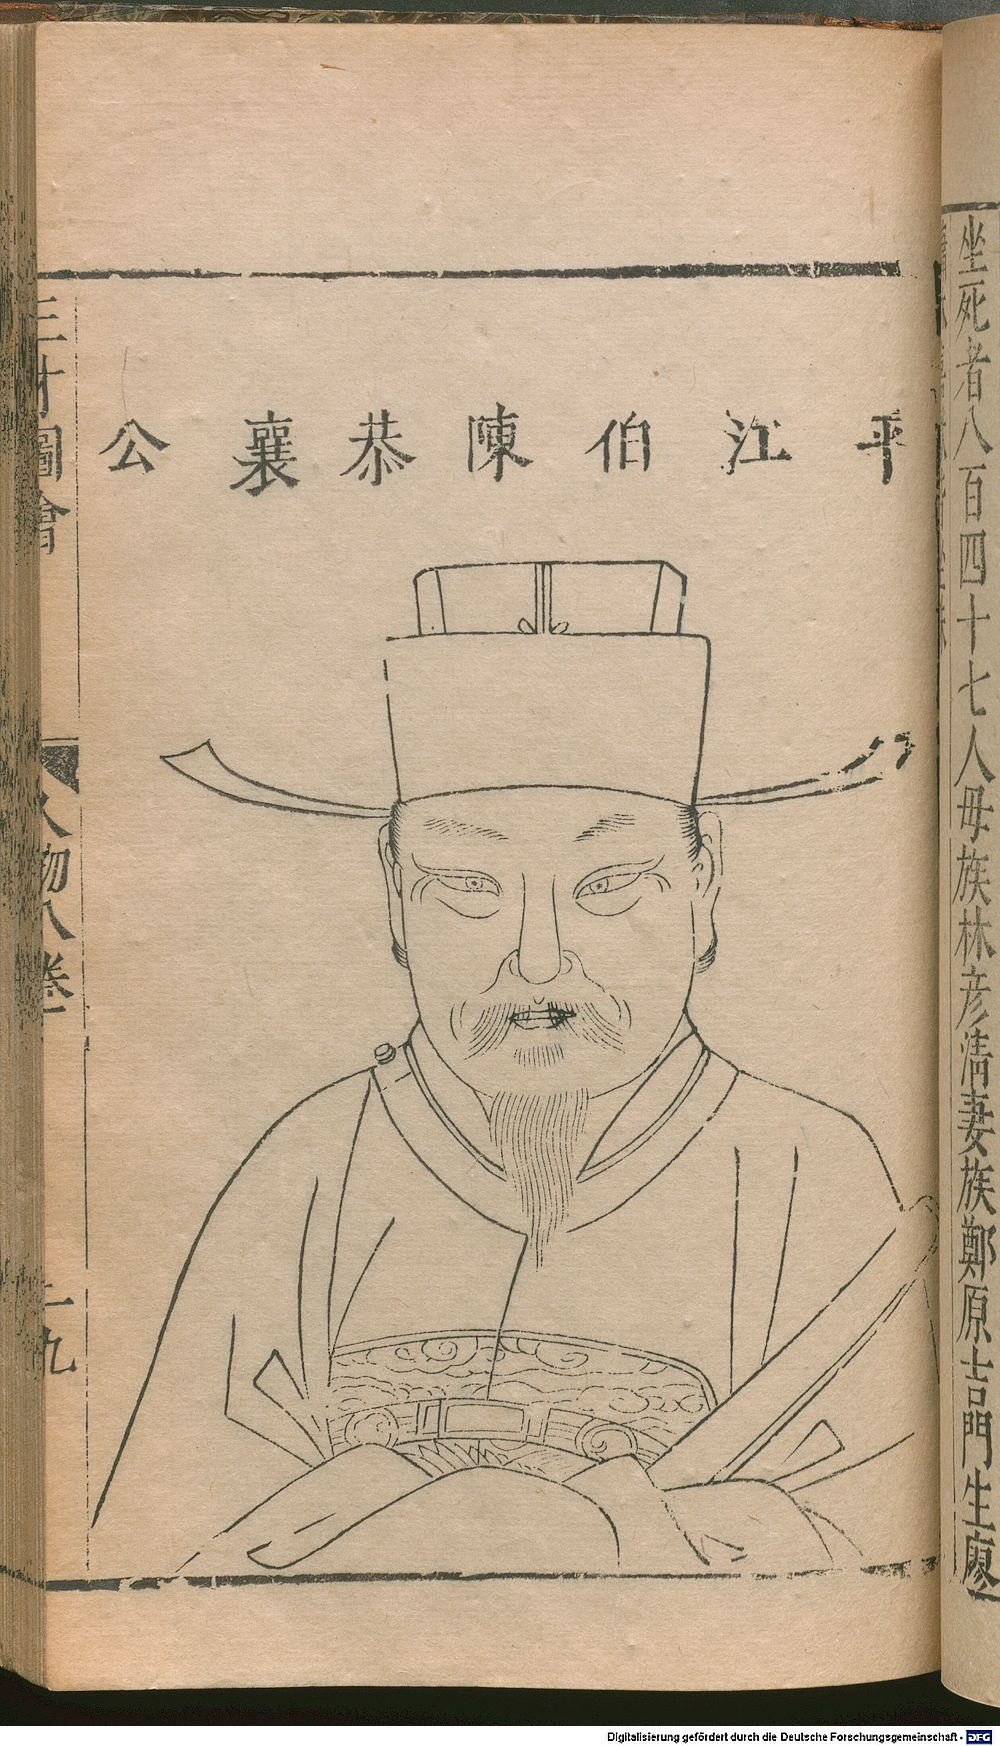 坐死者八百四十七人母族林彦清妻族鄭原吉門生廖
平江伯陳恭襄公
三才圖會
人物八卷
十九
Digitalisierung gefördert durch die Deutsche Forschungsgemeinschaft - DFG